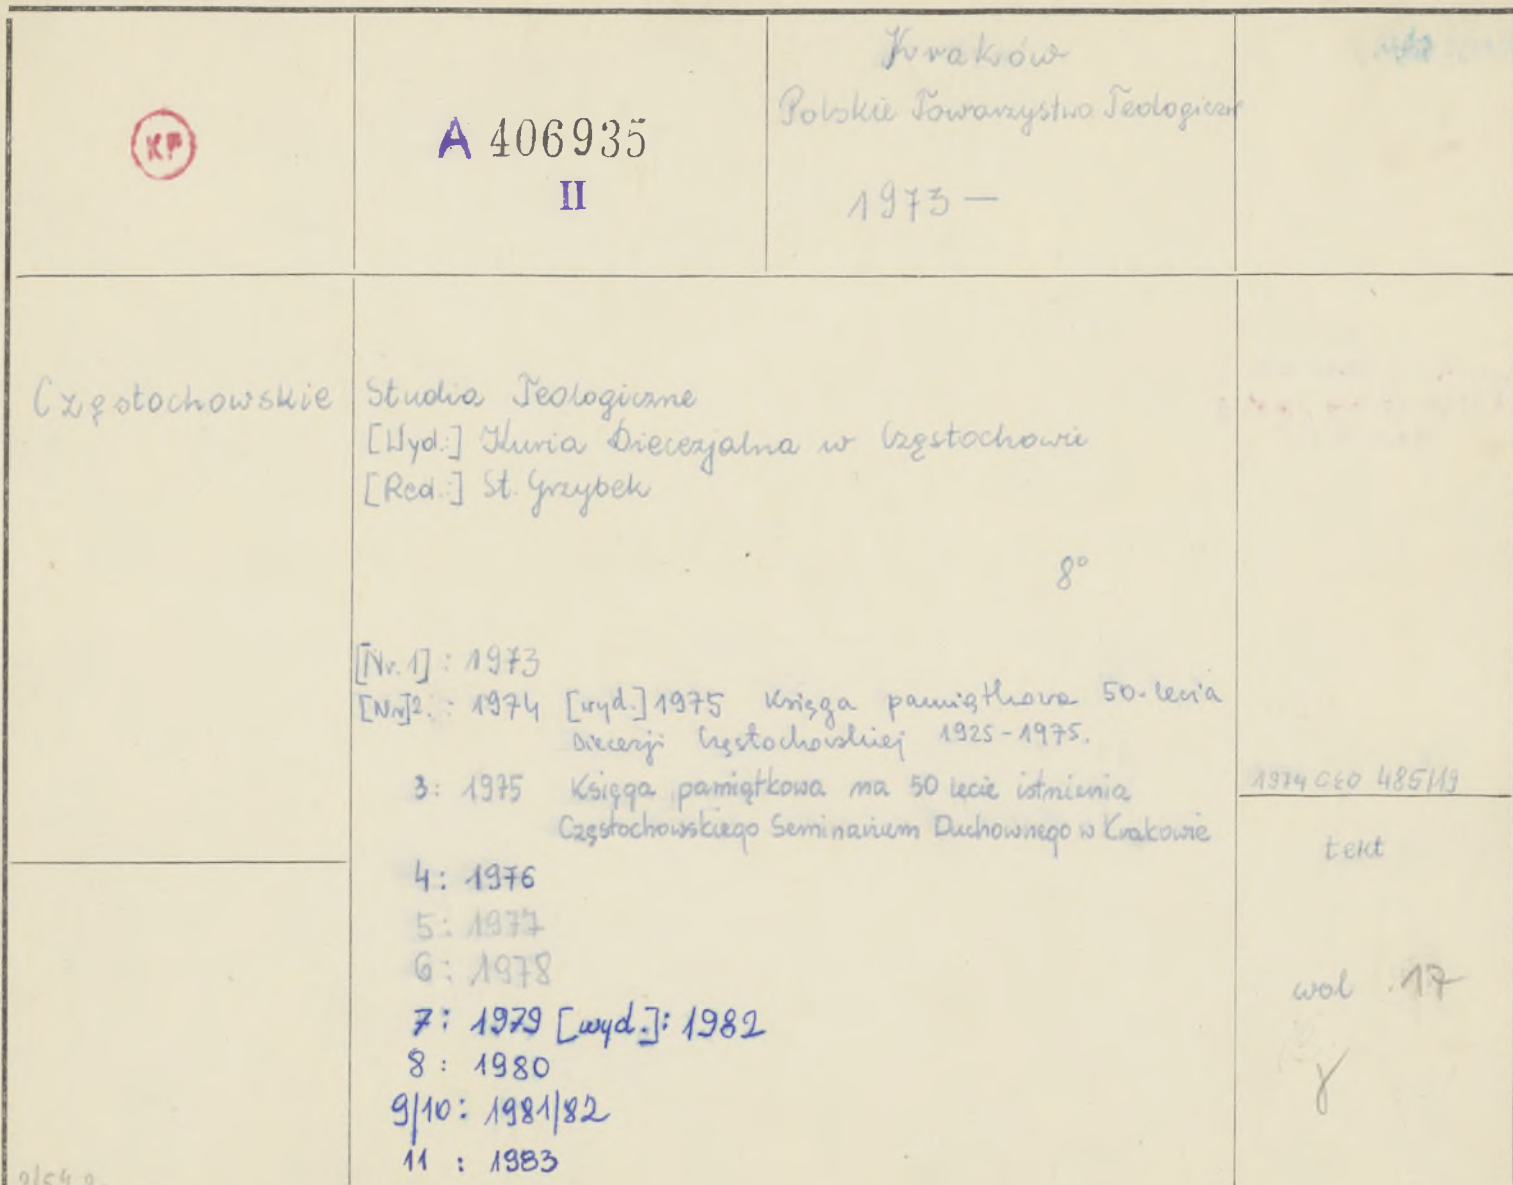 KP
A 406935
II
Kraków
Polskie Towarzystwo Teologiczne
1973 —
Częstochowskie
Studia Teologiczne
[Wyd.:] Kuria Diecezjalna w Częstochowie
[Red.:] St. Grzybek
8°
[Nr. 1] : 1973
[Nr]2. : 1974 [wyd.] 1975 Księga pamiątkowa 50-lecia
Diecezji Częstochowskiej 1925-1975.
3: 1975 Księga pamiątkowa na 50 lecie istnienia
Częstochowskiego Seminarium Duchownego w Krakowie
4: 1976
5: 1977
6: 1978
7: 1979 [wyd.]: 1982
8 : 1980
9/10: 1981/82
11 : 1983
1974 CEO 485/19
tekt
wol. 17